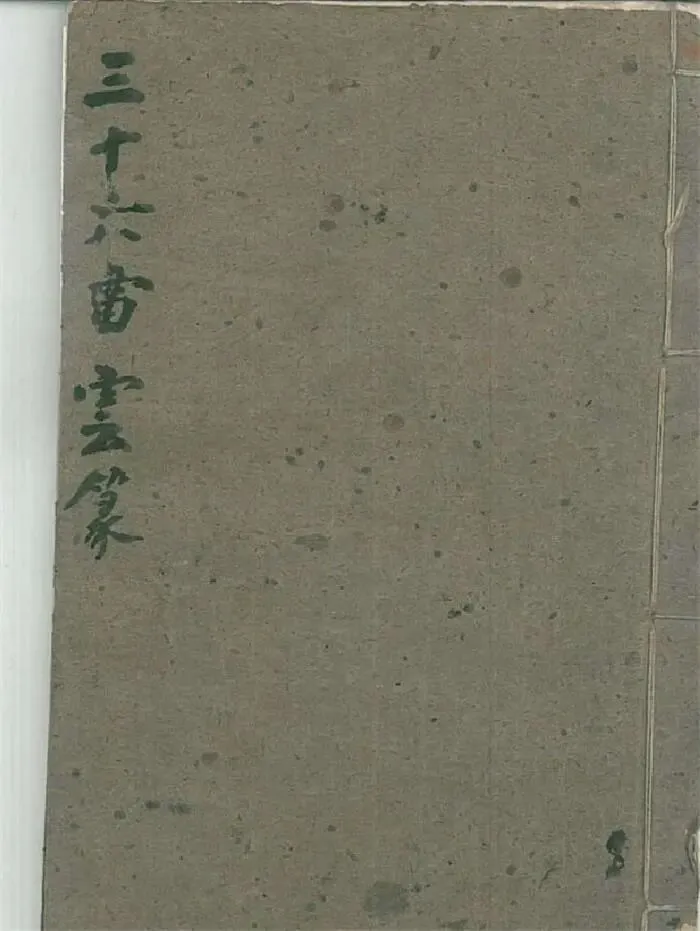 三十六雷雲篆